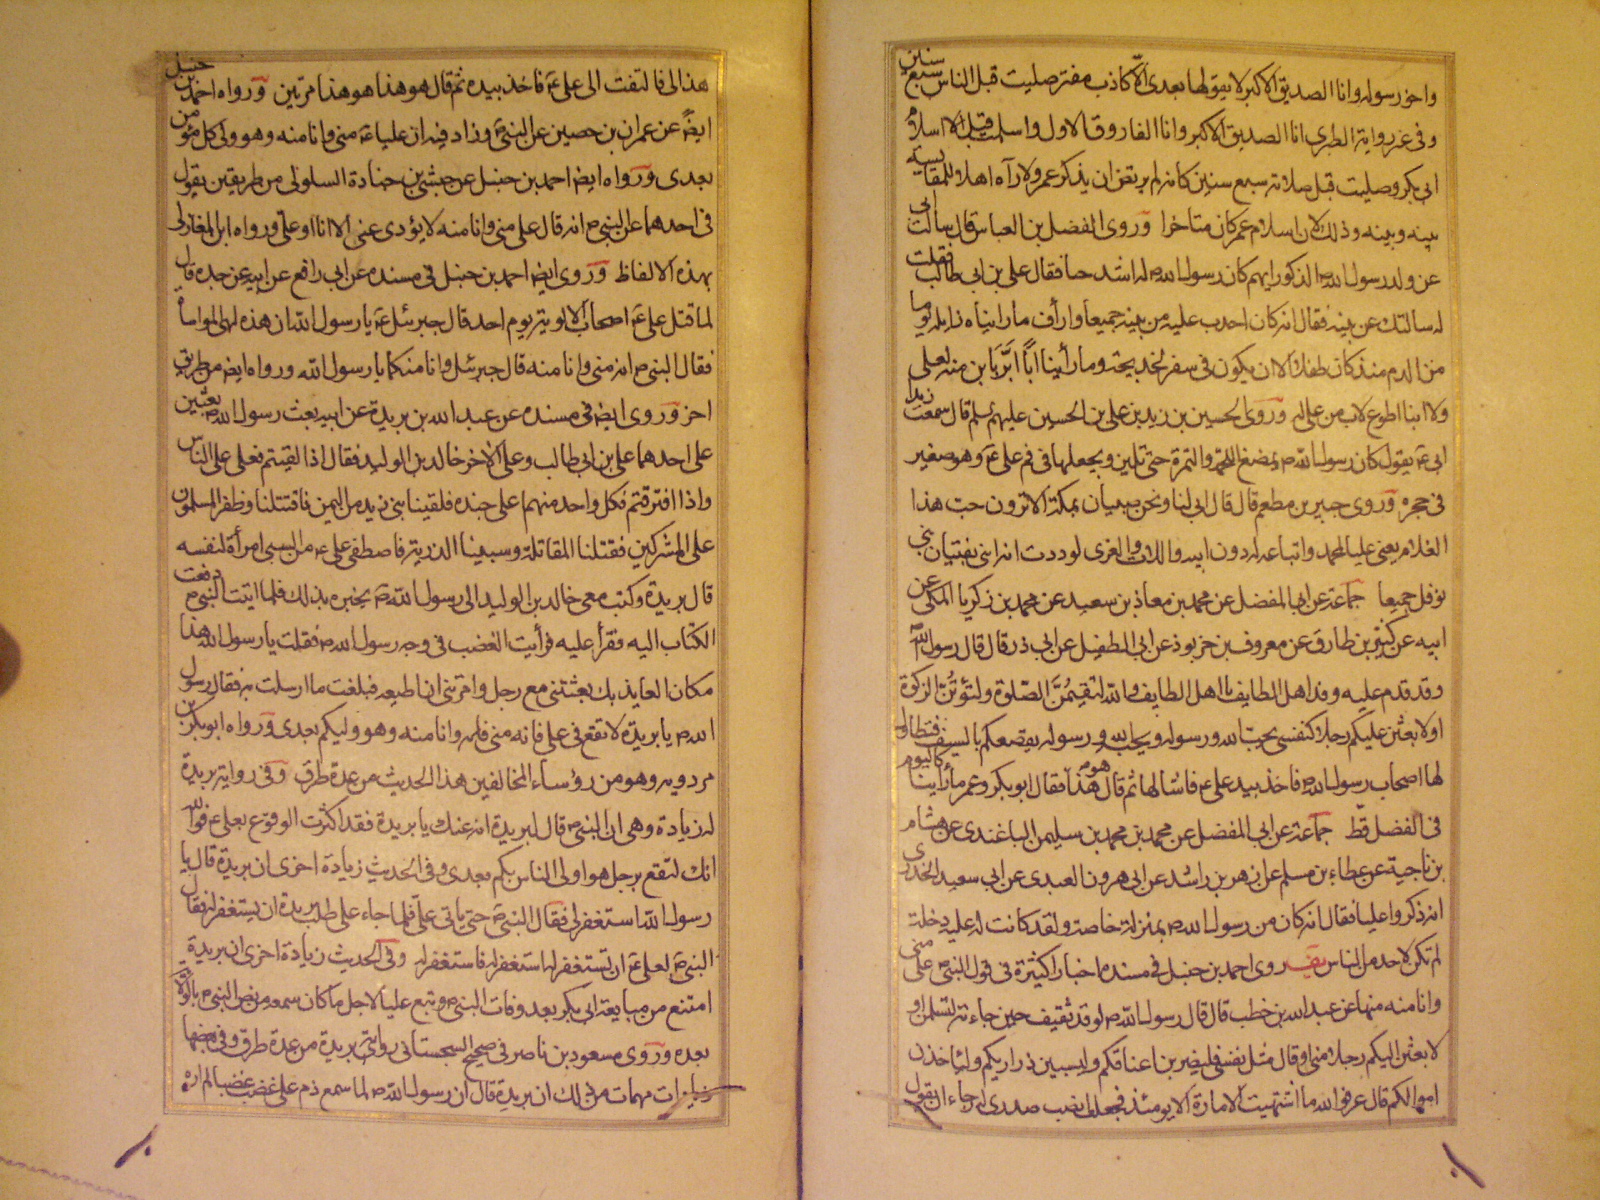 واخو رسوله وانا الصديق الاكبر لا يقولها بعدى الا كاذب مفتر صليت قبل الناس سبع سنين
وفى غير رواية الطبرى انا الصديق الاكبر وانا الفاروق الاول واسلمت قبل اسلام
ابى بكر وصليت قبل صلاته سبع سنين كانه لم يرتض ان يذكر عمر ولا رآه اهلا للمقايسة
بينه وبينه وذلك لان اسلام عمر كان متاخرا وروى الفضل بن العباس قال سالت ابى
عن ولد رسول الله الذكور ايهم كان رسول الله ص له اشد حبا فقال على بن ابى طالب فقلت
له سالتك عن بنيه فقال انه كان احب عليه من بنيه جميعا وارأف ما رايناه زايله يوما
من الدهر منذ كان طفلا الا ان يكون فى سفر لخديجة وما رأينا ابًا ابَّر بابن منه لعلى
ولا ابنا اطوع لاب من على له وروى الحسين بن زيد بن على بن الحسين عليهم السلم قال سمعت زيدا
ابى ع يقول كان رسول الله ص يمضغ اللحمة والتمرة حتى تلين ويجعلها فى فم على ع وهو صغير
فى حجره وروى جبير بن مطعم قال قال ابى لنا ونحن صبيان بمكة الا ترون حب هذا
الغلام يعنى عليا لمحمد واتباعه له دون ابيه واللات والعزى لوددت انه ابنى بفتيان بنى
نوفل جميعا جماعة عن ابى المفضل عن محمد بن معاذ بن سعيد عن محمد بن زكريا المكى عن
ابيه عن كثير بن طارق عن معروف بن خربوذ عن ابى الطفيل عن ابى ذر قال قال رسول الله ص
وقد قدم عليه وفد اهل الطايف يا اهل الطايف والله لتقيمُنَّ الصلوة ولتؤتُنَّ الزكوة
اولابعثن عليكم رجلا كنفسى يحب الله ورسوله ويحبه الله ورسوله يقصعكم بالسيف فتطاول
لها اصحاب رسول الله ص فاخذ بيد على ع فاشالها ثم قال هو هذا فقال ابوبكر وعمر ما رأينا كاليوم
فى الفضل قط جماعة عن ابى المفضل عن محمد بن محمد بن سليمن الباغندى عن هشام
بن ناجية عن عطاء بن مسلم عن ازهر بن راشد عن ابى هرون العبدى عن ابى سعيد الخدرى
انه ذكروا عليا فقال انه كان من رسول الله ص بمنزلة خاصة ولقد كانت له عليه دخلة
لم تكن لاحد من الناس يف روى احمد بن حنبل فى مسنده اخبارا كثيرة فى قول النبى ص على منى
وانا منه منها عن عبد الله بن خطب قال قال رسول الله ص لوفد ثقيف حين جاءته لتسلمن او
لابعثن اليكم رجلا منى او قال مثل نفسى فليضربن اعناقكم وليسبين ذراريكم ولياخذن
اموالكم قال عمر فوالله ما اشتهيت الامارة الا يومئذ فجعلت انصب صدرى له رجاء ان يقول
هذا لى فالتفت الى على ع فاخذ بيده ثم قال هو هذا هو هذا مرتين ورواه احمد بن حنبل
ايضً عن عمران بن حصين عن النبى ص وزاد فيه ان عليا ع منى وانا منه وهو ولى كل مؤمن
بعدى ورواه ايض احمد بن حنبل عن حبشى بن جنادة السلولى من طريقين يقول
فى احدهما عن النبى ص انه قال على منى وانا منه لا يؤدى عنى الا انا او على ورواه ابن المغازلى
بهذه الالفاظ وروى ايض احمد بن حنبل فى مسنده عن ابى رافع عن ابيه عن جده قال
لما قتل على ع اصحاب الالوية يوم احد قال جبرئيل ع يا رسول الله ان هذه لهى المواساة
فقال النبى ص انه منى وانا منه قال جبرئيل وانا منكما يا رسول الله ورواه ايض من طريق
اخر وروى ايض فى مسنده عن عبد الله بن بريدة عن ابيه بعث رسول الله ص بعثين
على احدهما على بن ابى طالب وعلى الاخر خالد بن الوليد فقال اذا لقيتم فعلى على الناس
واذا افترقتم فكل واحد منهما على جنده فلقينا بنى زيد من اليمن فاقتتلنا وظفر المسلمون
على المشركين فقتلنا المقاتلة وسبينا الذرية فاصطفى على ع من السبى امرأة لنفسه
قال بريدة وكتب معى خالد بن الوليد الى رسول الله ص يخبره بذلك فلما اتيت النبى ص دفعت
الكتاب اليه فقرأ عليه فرأيت الغضب فى وجه رسول الله ص فقلت يا رسول الله هذا
مكان العايذ بك بعثتنى مع رجل وامرتنى ان اطيعه فبلغت ما ارسلت به فقال رسول
الله ص يا بريدة لا تقع فى على فانه منى وانا منه وهو وليكم بعدى ورواه ابوبكر بن
مردويه وهو من رؤساء المخالفين هذا الحديث من عدة طرق وفى رواية بريدة
له زيادة وهى ان النبى ص قال لبريدة انه عنك يا بريدة فقد اكثرت الوقوع بعلى ع فوالله
انك لتقع برجل هو اولى الناس بكم بعدى وفى الحديث زيادة اخرى ان بريدة قال يا
رسول الله استغفر لى فقال النبى ص حتى ياتى على فلما جاء على طلب بريدة ان يستغفر له فقال
النبى ص لعلى ع ان تستغفر له استغفر له فاستغفر له وفى الحديث زيادة اخرى ان بريدة
امتنع من مبايعة ابى بكر بعد وفات النبى ص وتبع عليا لاجل ما كان سمعه من نص النبى ص بالولاية
بعده وروى مسعود بن ناصر فى صحيح السجستانى رواية بريدة من عدة طرق وفى بعضها
زيادات مهمات من ذلك ان بريدة قال ان رسول الله ص لما سمع ذم على غضب غضبا لم اره